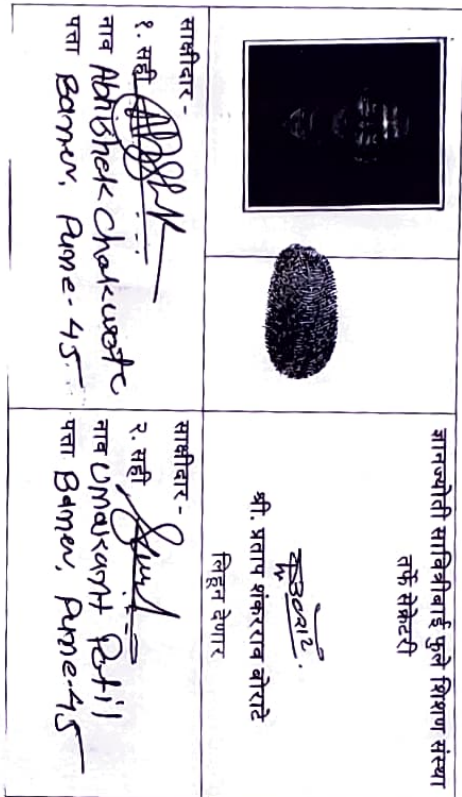 ज्ञानज्योती सावित्रीबाई फुले शिक्षण संस्था
तर्फे सेक्रेटरी
श्री. प्रताप शंकरराव बोराटे
लिहून देणार
साक्षीदार -
१. सही
नाव Abhishek Chakwate
पत्ता Baner, Pune - 45
साक्षीदार -
२. सही
नाव Umakant Patil
पत्ता Baner, Pune-45